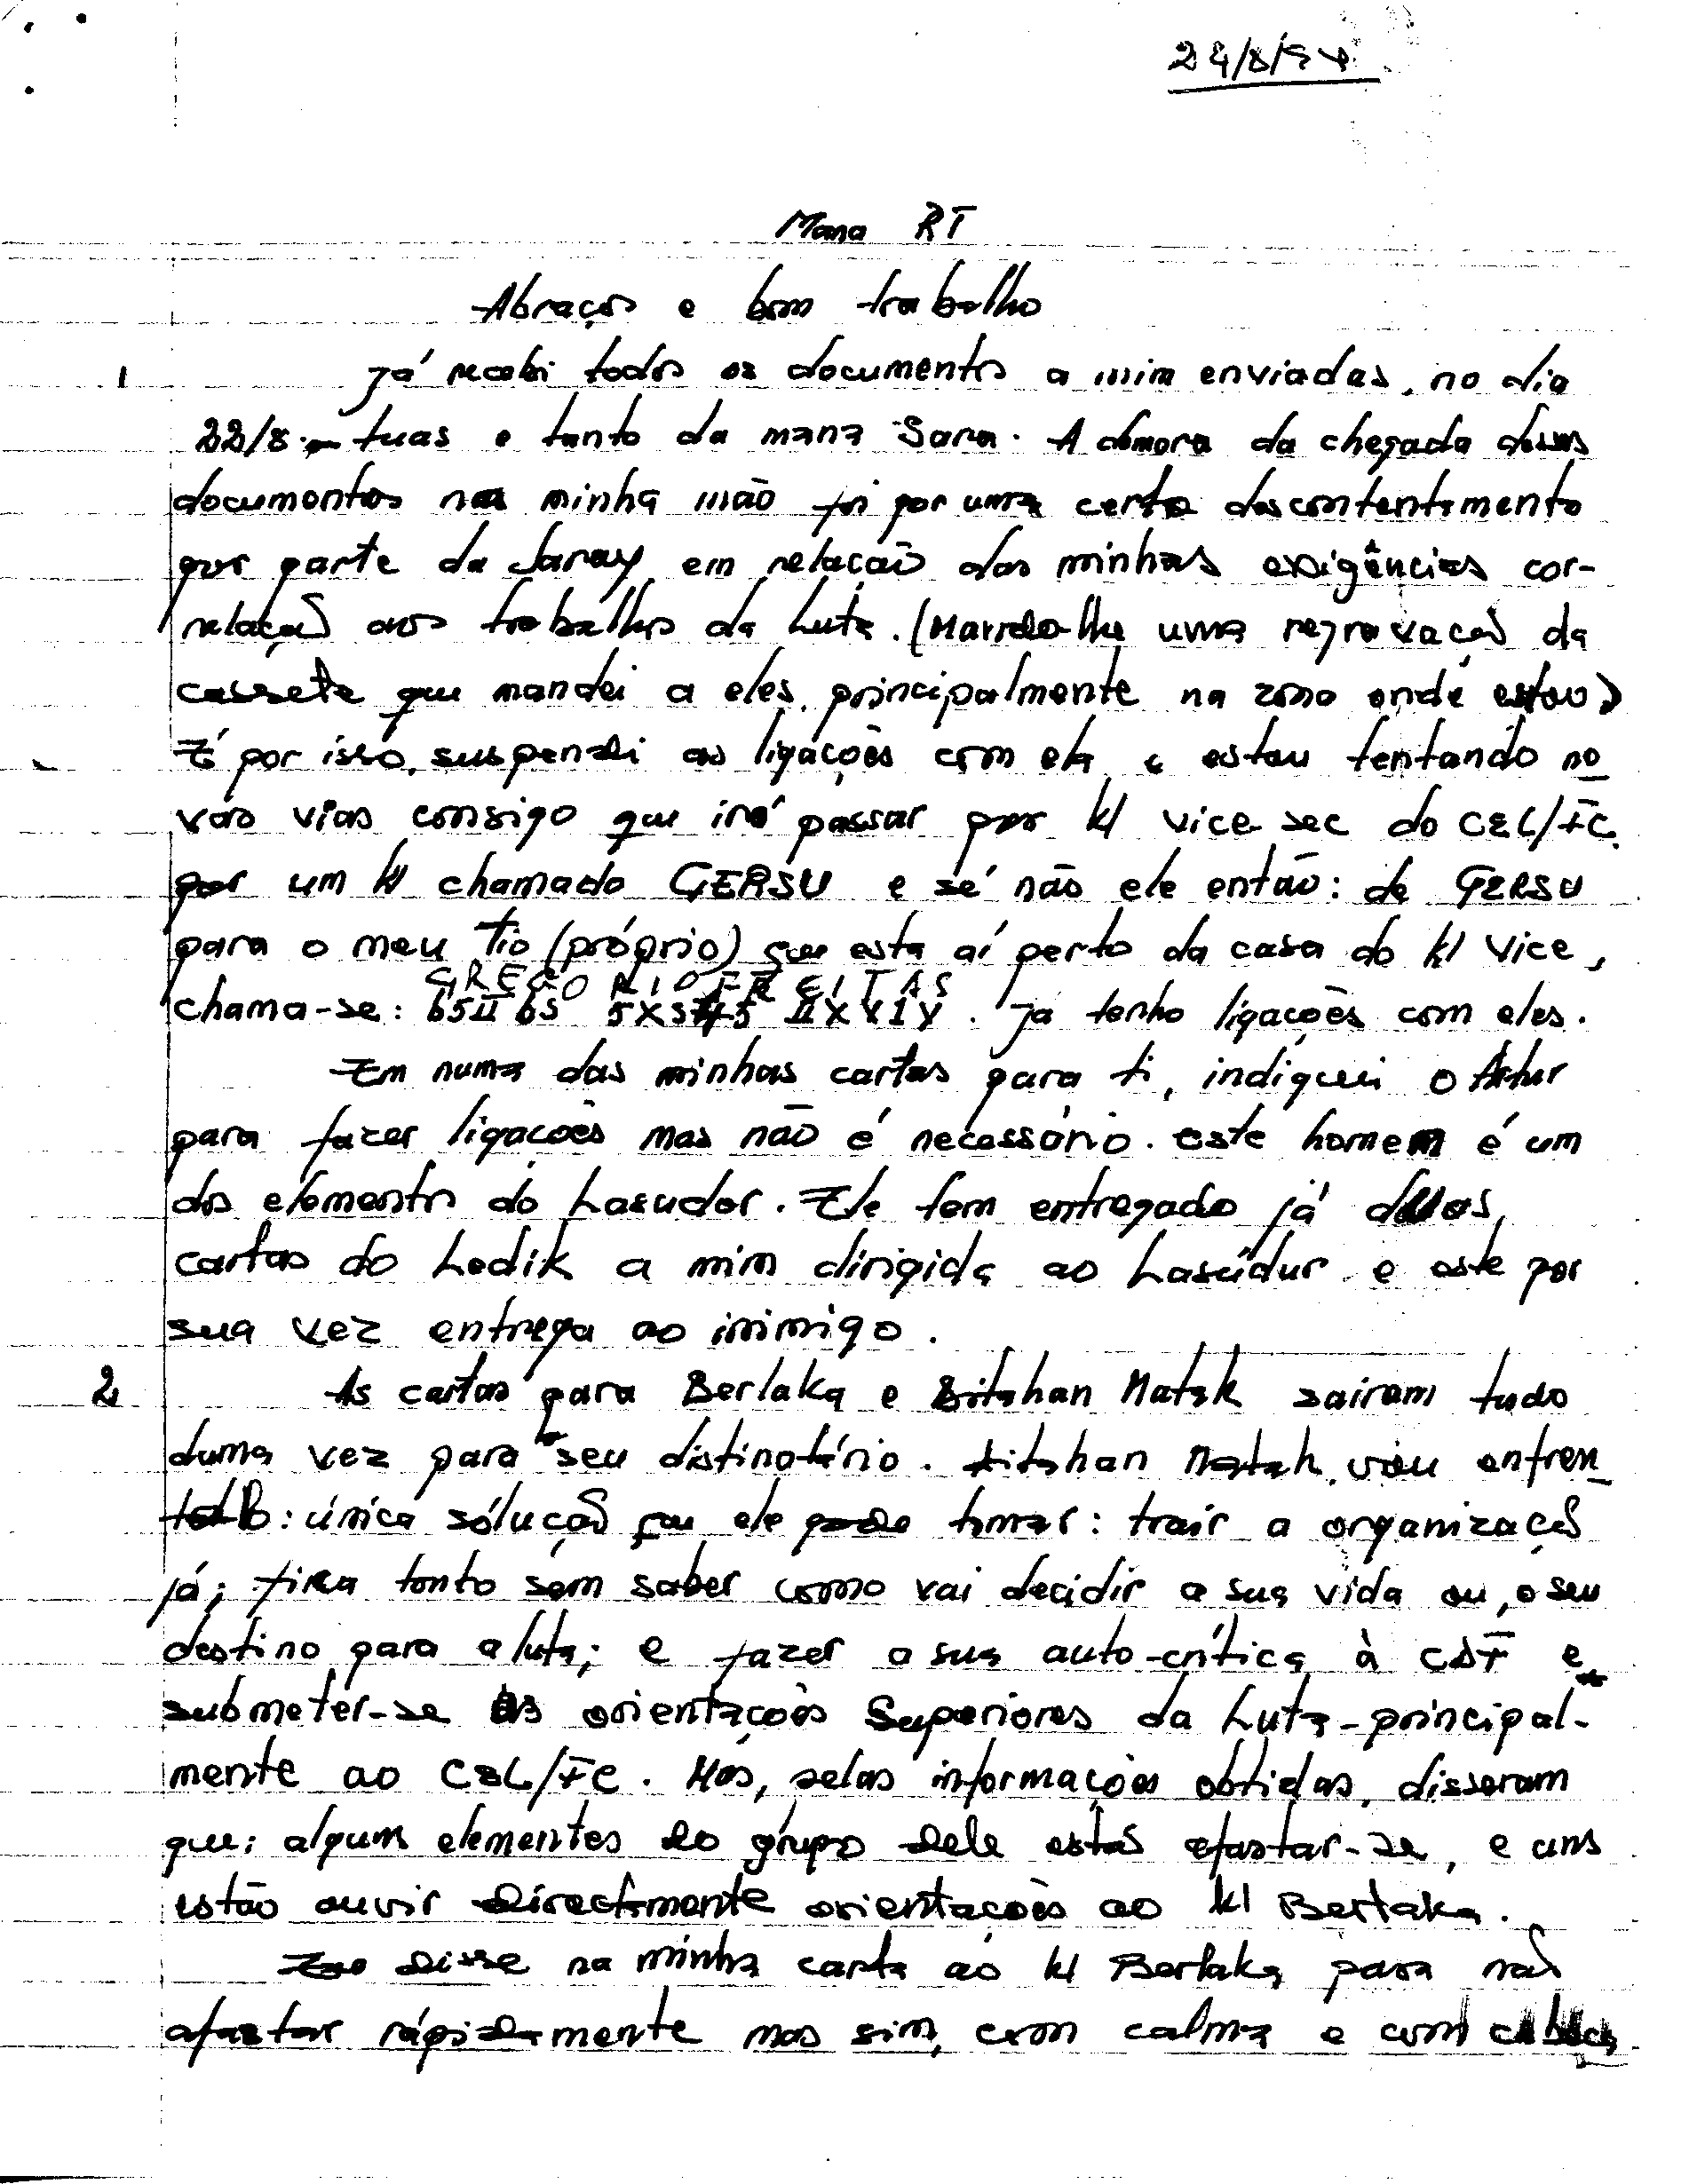 24/8/94
Mana RT
Abraços e bom trabalho
1 Já recebi todos os documentos a mim enviadas, no dia
22/8 - tuas e tanto da mana Sara. A demora da chegada desses
documentos na minha mão foi por uma certa descontentamento
por parte da Saray em relação das minhas exigências cor-
relação aos trabalhos da Luta. (Manda-lhe uma regravação da
cassete que mandei a eles, principalmente na zona onde estou)
É por isso, suspendi as ligações com ela e estou tentando no
vas vias consigo que irá passar por kl vice sec do CEL/FC.
por um kl chamado GERSU e sé não ele então: de GERSU
para o meu Tio (próprio) que esta aí perto da casa do kl vice,
GREGORIO FREITAS
chama-se: . já tenho ligações com eles.
Em numa das minhas cartas para ti, indiquei o Artur
para fazer ligacões mas não é necessário. este homem é um
dos elementos do Lasudor. Ele tem entregado já duas
cartas do Lodik a mim dirigida ao Lasúdur e este por
sua vez entrega ao inimigo.
2 As cartas para Berlaka e Bitahan Matak sairam tudo
duma vez para seu distinatário. Bitahan Matak, vou enfren
: única sólução que ele pode tomar: trair a organização
já; fica tonto sem saber como vai decidir a sua vida ou, o seu
destino para a luta; e fazer a sua auto-crítica à CDF e
submeter-se às orientações Superiores da Luta - principal-
mente ao CEL/FC. Mas, pelas informações obtidas, disseram
que: algums elementos do grupo dele estás afastar-se, e uns
estão ouvir directamente orientações ao kl Berlaka.
Eu disse na minha carta ao kl Berlaka para não
afastar rápidamente mas sim, com calma e com cabeça